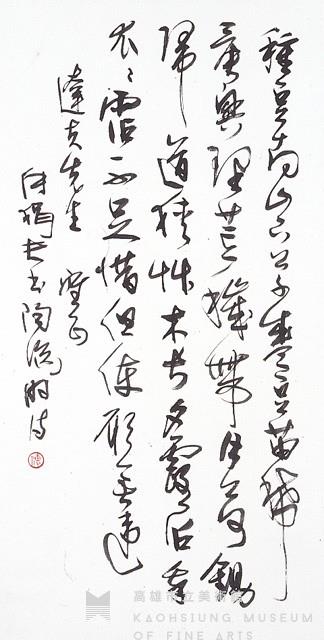 種豆南山下草盛豆苗稀
晨興理荒穢帶月荷鋤
歸道狹草木長夕露沾我
衣々霑不足惜但使願無違
達夫先生 雅正
書陶淵明詩
高雄市立美術館
KAOHSIUNG MUSEUM
OF FINE ARTS